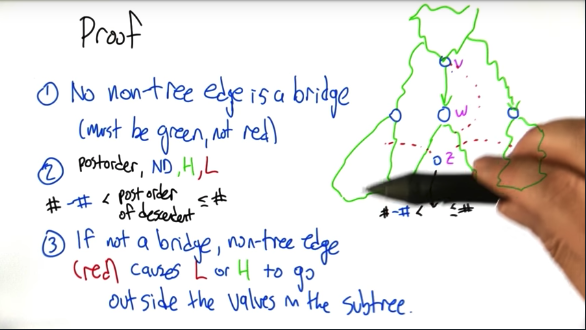 Proof
① No non-tree edge is a bridge
(must be green, not red)
② postorder, ND, H, L
# - # < post order of descendent ≤ #
③ If not a bridge, non-tree edge
(red) causes L or H to go
outside the values in the subtree.
v
w
z
# - # < ≤ #